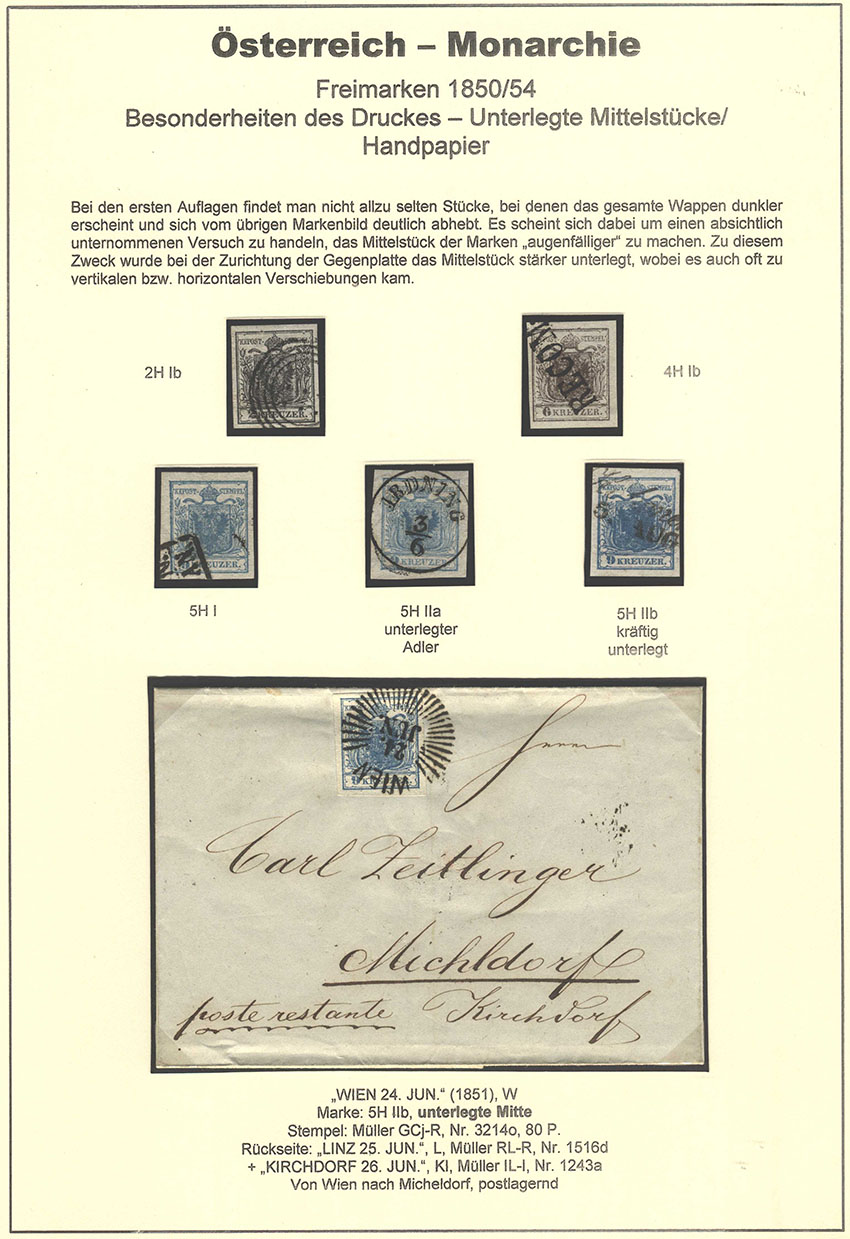 Österreich – Monarchie
Freimarken 1850/54
Besonderheiten des Druckes – Unterlegte Mittelstücke/
Handpapier
Bei den ersten Auflagen findet man nicht allzu selten Stücke, bei denen das gesamte Wappen dunkler
erscheint und sich vom übrigen Markenbild deutlich abhebt. Es scheint sich dabei um einen absichtlich
unternommenen Versuch zu handeln, das Mittelstück der Marken „augenfälliger“ zu machen. Zu diesem
Zweck wurde bei der Zurichtung der Gegenplatte das Mittelstück stärker unterlegt, wobei es auch oft zu
vertikalen bzw. horizontalen Verschiebungen kam.
2H Ib
KKPOST-STEMPEL
2 KREUZER.
STEMPEL
RECOM
6 KREUZER.
4H Ib
KKPOST-STEMPEL
KREUZER.
IRDNING
3/6
9 KREUZER.
KKPOST-STEMPEL
AUG
9 KREUZER.
5H I
5H IIa
unterlegter
Adler
5H IIb
kräftig
unterlegt
WIEN
24.
JUN.
Herrn
Carl Zeitlinger
Michldorf
poste restante Kirchdorf
„WIEN 24. JUN.“ (1851), W
Marke: 5H IIb, unterlegte Mitte
Stempel: Müller GCj-R, Nr. 3214o, 80 P.
Rückseite: „LINZ 25. JUN.“, L, Müller RL-R, Nr. 1516d
+ „KIRCHDORF 26. JUN.“, KI, Müller IL-I, Nr. 1243a
Von Wien nach Micheldorf, postlagernd